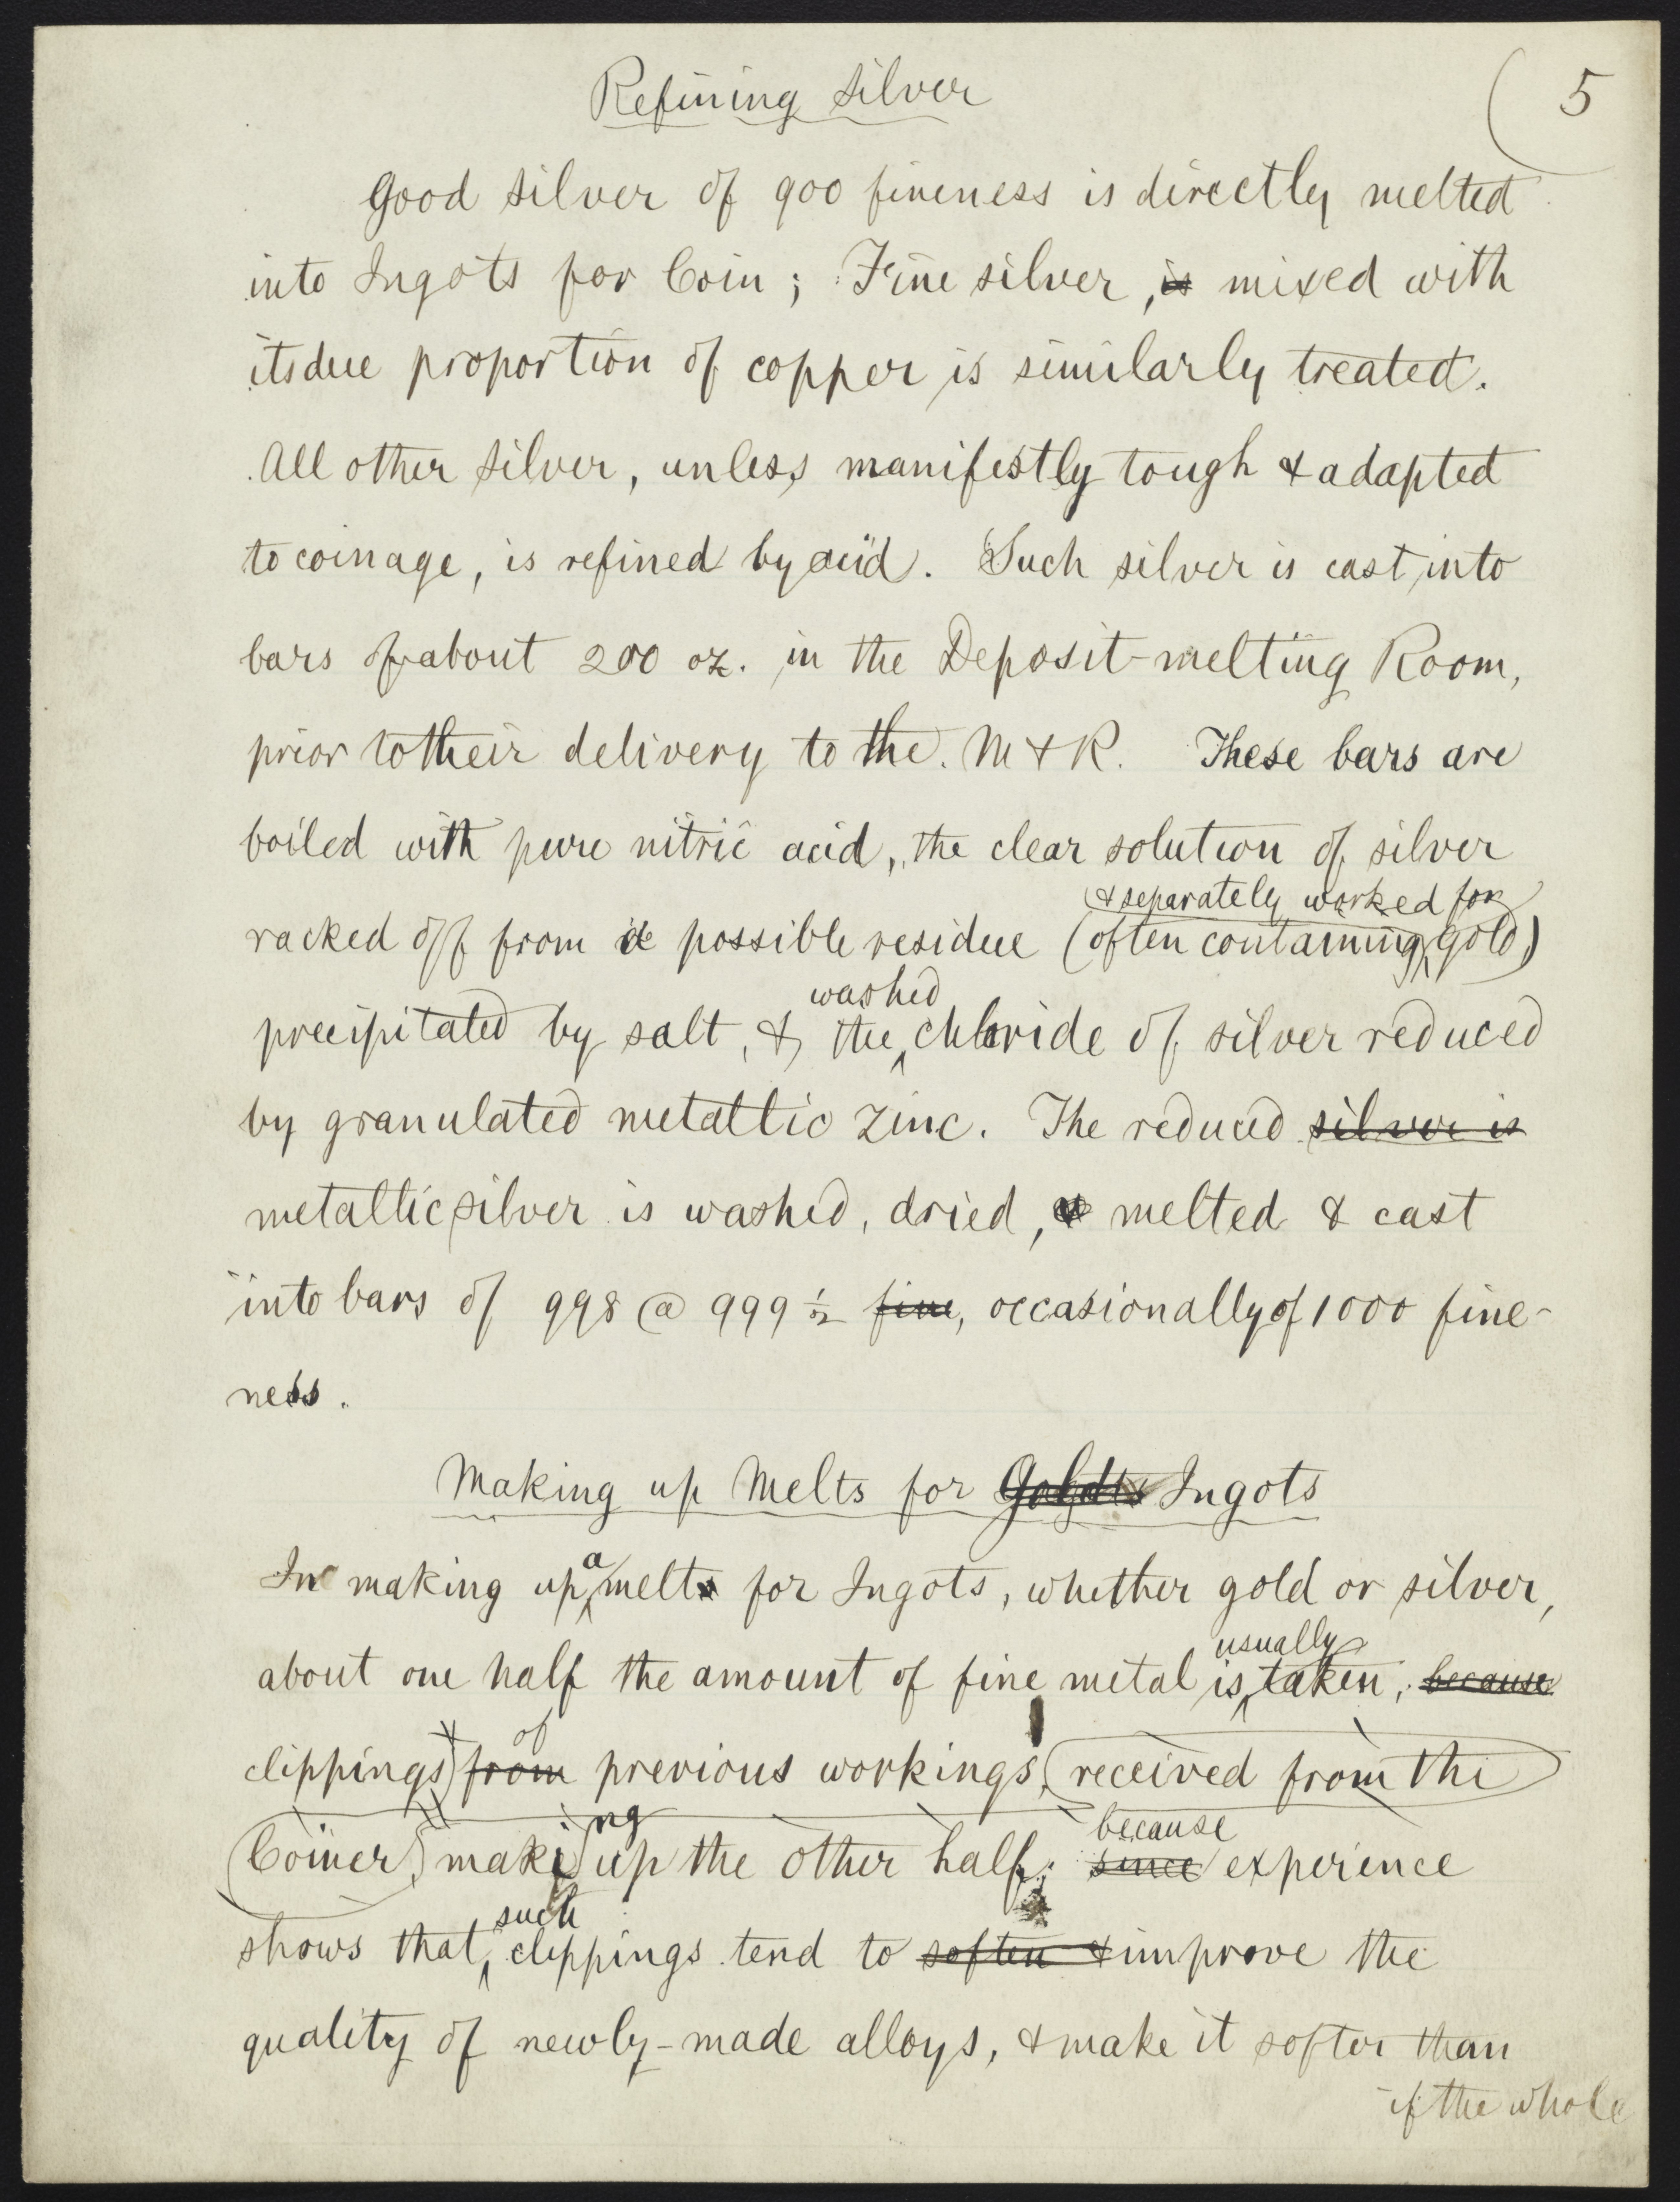 Refining Silver
5
Good silver of 900 fineness is directly melted
into Ingots for Coin; Fine silver, is mixed with
its due proportion of copper is similarly treated.
All other silver, unless manifestly tough & adapted
to coinage, is refined by acid. Such silver is cast into
bars of about 200 oz. in the Deposit-melting Room,
prior to their delivery to the M & R. These bars are
boiled with pure nitric acid, the clear solution of silver
& separately worked for
racked off from possible residue (often containing gold)
washed
precipitated by salt, & the chloride of silver reduced
by granulated metallic zinc. The reduced silver is
metallic silver is washed, dried, & melted & cast
into bars of 998 @ 999 ½ fine, occasionally of 1000 fine-
ness.
Making up Melts for Ingots
a
In making up melts for Ingots, whether gold or silver,
usually
about one half the amount of fine metal is taken, because
of
clippings from previous workings, (received from the
ng because
Coiner,) make up the other half; since experience
such
shows that clippings tend to soften & improve the
quality of newly-made alloys, & make it softer than
if the whole